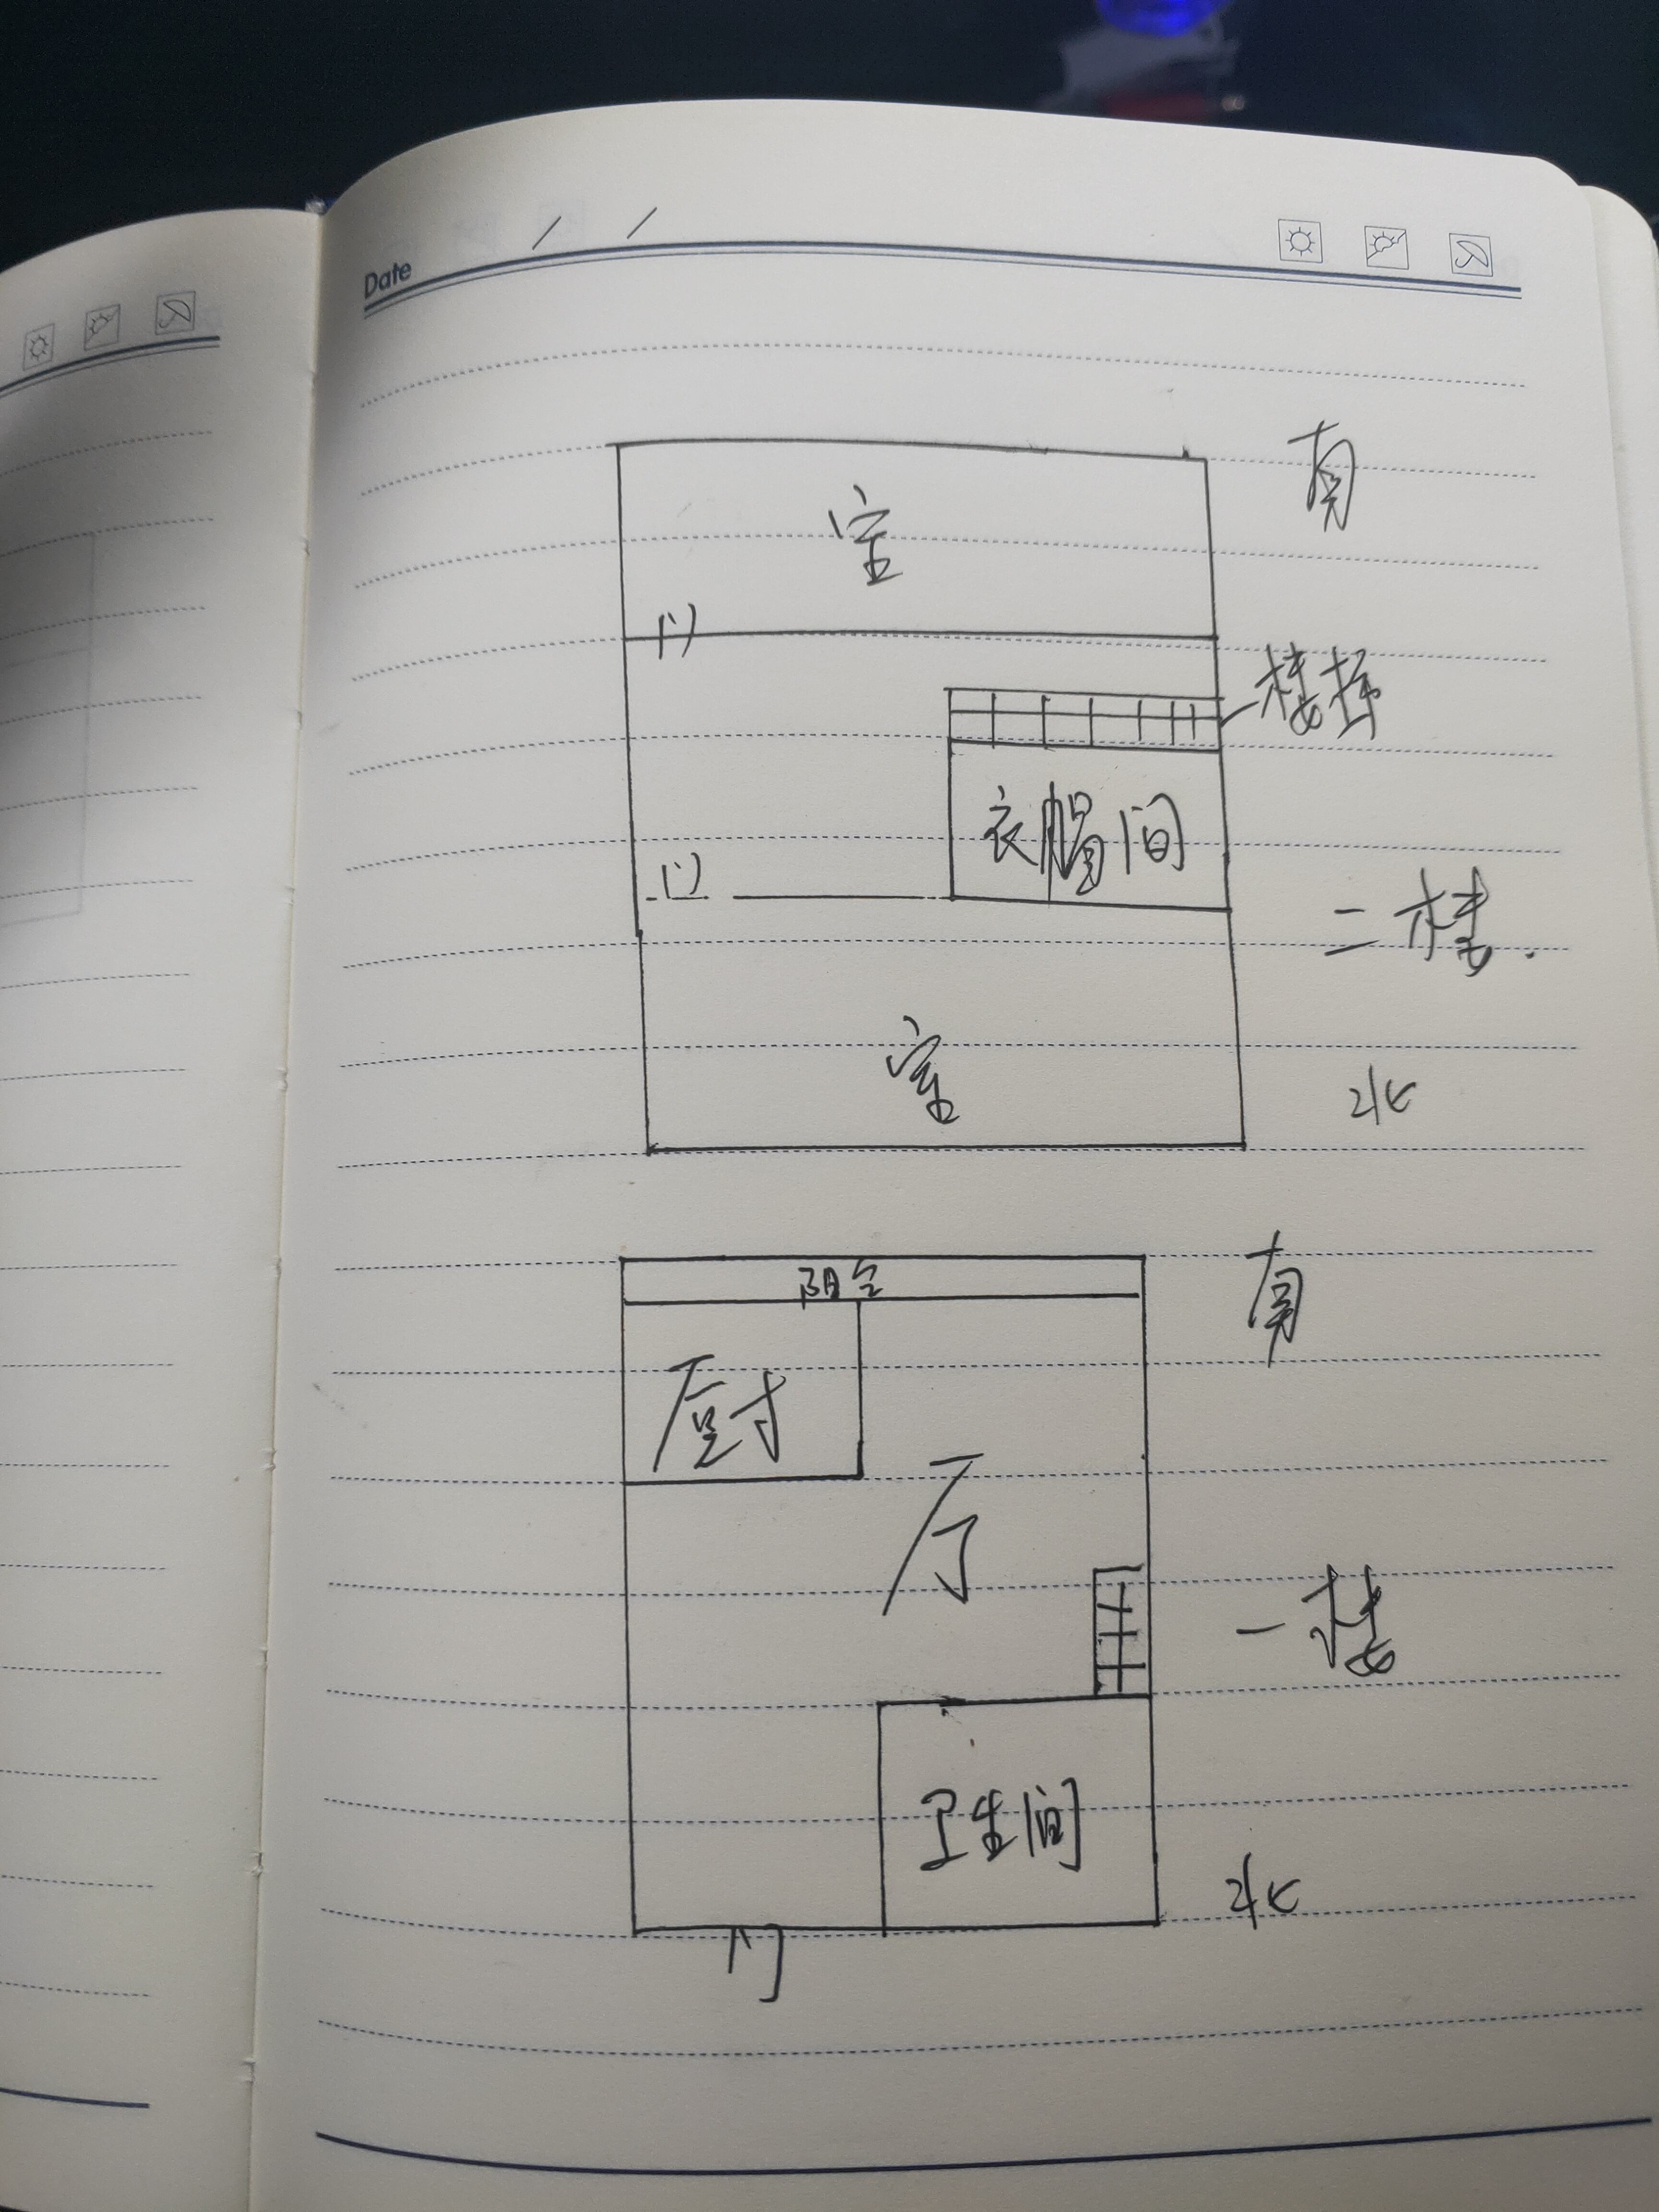 Date / /
南
室
门
楼梯
衣帽间
门
二楼.
室
北
阳台
南
厨
厅
一楼
卫生间
北
门